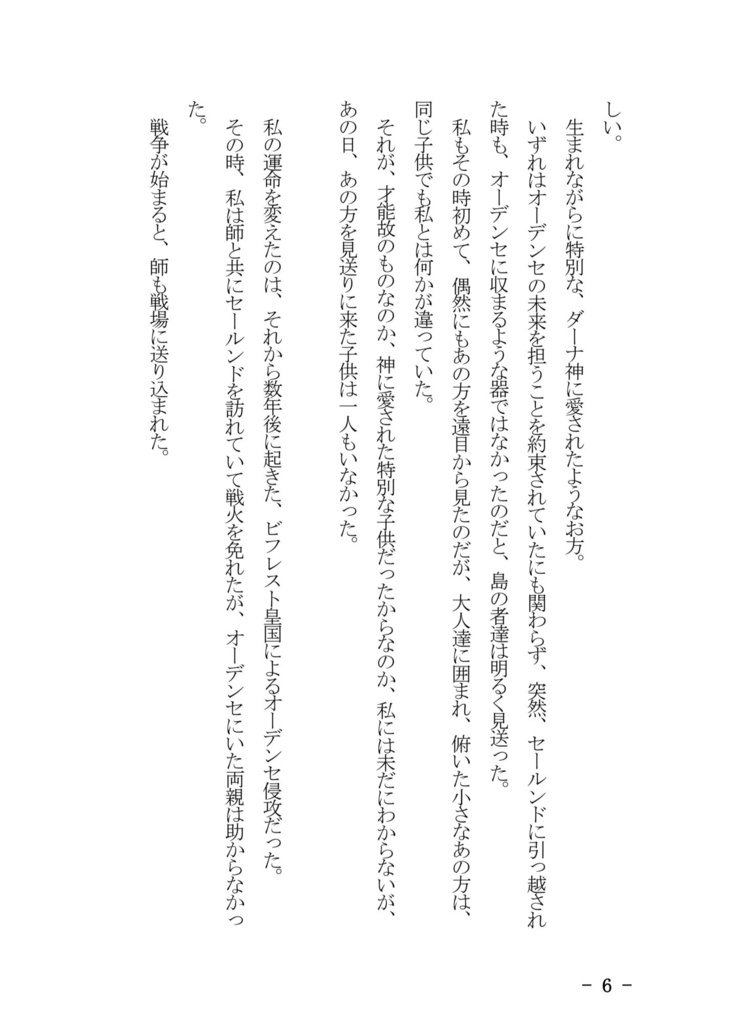 しい。
　生まれながらに特別な、ダーナ神に愛されたようなお方。
　いずれはオーデンセの未来を担うことを約束されていたにも関わらず、突然、セールンドに引っ越され
た時も、オーデンセに収まるような器ではなかったのだと、島の者達は明るく見送った。
　私もその時初めて、偶然にもあの方を遠目から見たのだが、大人達に囲まれ、俯いた小さなあの方は、
同じ子供でも私とは何かが違っていた。
　それが、才能故のものなのか、神に愛された特別な子供だったからなのか、私には未だにわからないが、
あの日、あの方を見送りに来た子供は一人もいなかった。
　私の運命を変えたのは、それから数年後に起きた、ビフレスト皇国によるオーデンセ侵攻だった。
　その時、私は師と共にセールンドを訪れていて戦火を免れたが、オーデンセにいた両親は助からなかっ
た。
　戦争が始まると、師も戦場に送り込まれた。
- 6 -